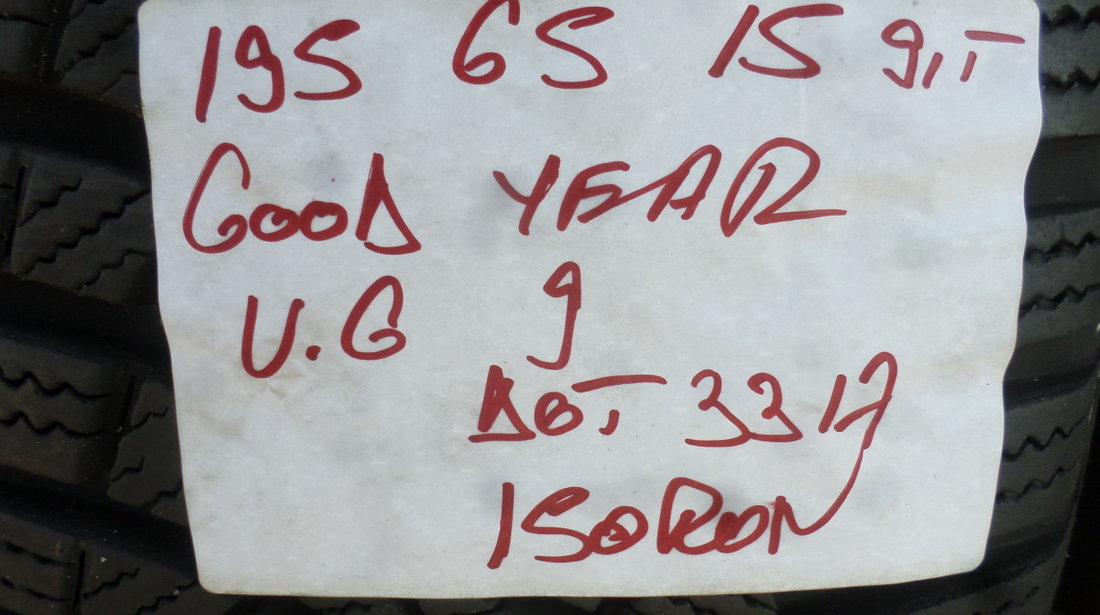 195 65 15 9,T
GOOD YEAR
U.G 9
DOT 3317
150RON